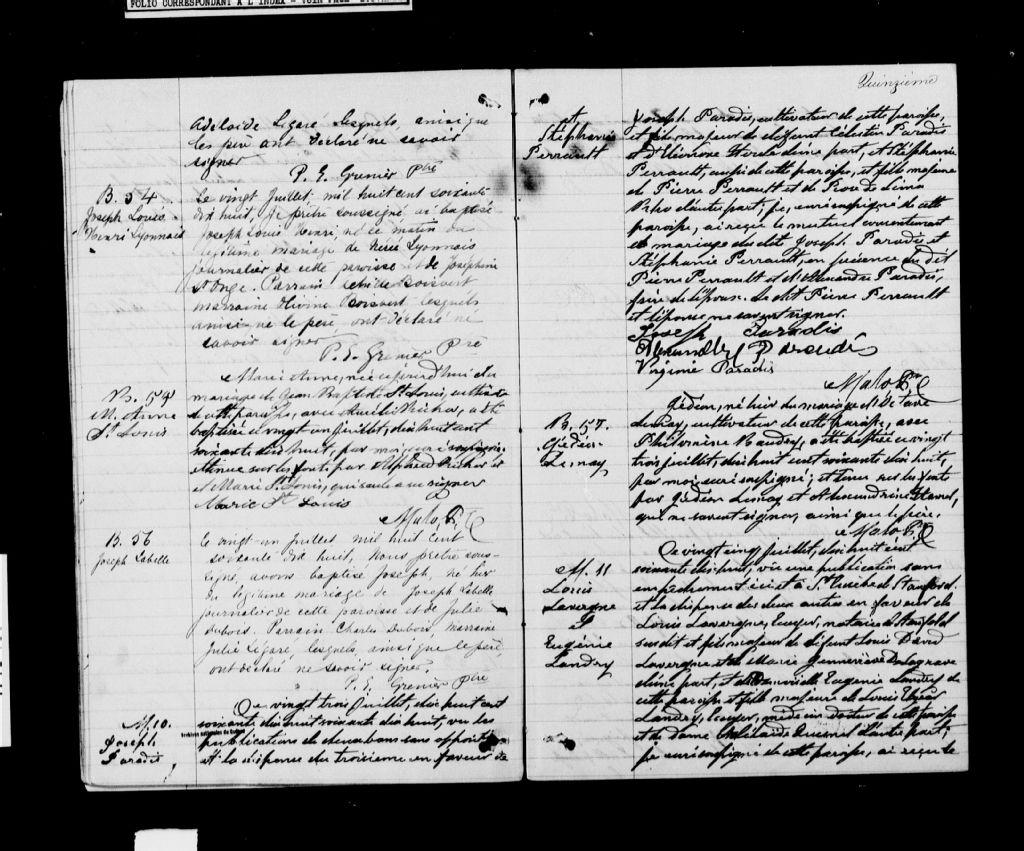 FOLIO CORRESPONDANT A L'INDEX - VOIR PAGE
Adelaïde Légaré. Lesquels, ainsi que
les père ont déclaré ne savoir
signer
P. E. Grenier Ptre
B. 54
Joseph Louis
Henri Lyonnais
Le vingt Juillet mil huit cent soixante
dix huit, Je prêtre soussigné, ai baptisé
Joseph Louis Henri, né ce matin du
légitime mariage de Henri Lyonnais
journalier de cette paroisse et de Joséphine
St Onge. Parrain Boisvert
marraine Boisvert lesquels
ainsi que le père, ont déclaré ne
savoir signer
P. E. Grenier Ptre
M. Anne
St Louis
Marie Anne, née aujourd'hui du
mariage de Jean Baptiste St Louis, cultivateur
de cette paroisse, avec Aurélie, a été
baptisée ce vingt un juillet, dix huit cent
soixante dix huit, par moi, curé soussigné
et tenue sur les fonts par Alphonse
et Marie St Louis, qui seule a su signer
Marie St Louis
Malo Ptre
B. 56
Joseph Labelle
Le vingt-un Juillet mil huit cent
soixante dix huit, Nous prêtre sous-
signé, avons baptisé Joseph, né hier
du légitime mariage de Joseph Labelle
journalier de cette paroisse et de Julie
Dubois. Parrain Charles Dubois, marraine
Julie Légaré lesquels, ainsi que le père,
ont déclaré ne savoir signer.
P. E. Grenier Ptre
M. 10.
Joseph
Paradis
Ce vingt trois Juillet, dix huit cent
soixante dix huit, vu les
publications de deux bans sans opposition
et la dispense du troisième en faveur de
Archives nationales du Québec
Quinzième
et
Stéphanie
Perrault
Joseph Paradis, cultivateur de cette paroisse,
et fils majeur de défunt Célestin Paradis
et d'Eléonore d'une part, et Stéphanie
Perrault, aussi de cette paroisse, et fille majeure
de Pierre Perrault et de Rose de Lima
d'autre part, je, curé soussigné de cette
paroisse, ai reçu le mutuel consentement
de mariage du dit Joseph Paradis et
Stéphanie Perrault, en présence du dit
Pierre Perrault et d'Alexandre Paradis,
frère de l'époux. Le dit Pierre Perrault
et l'épouse ne savent signer.
Joseph Paradis
Alexandre Paradis
Virginie Paradis
Malo Ptre
B. 57.
Gédéon
Lemay
Gédéon, né hier du mariage d'Octave
Lemay, cultivateur de cette paroisse, avec
Philomène Beaudry, a été baptisé ce vingt
trois juillet, dix huit cent soixante dix huit,
par moi, curé soussigné; et tenu sur les fonts
par Gédéon Lemay et Alexandrine
qui ne savent signer, ainsi que le père.
Malo Ptre
M. 11
Louis
Lavergne
&
Eugénie
Landry
Ce vingt cinq juillet, dix huit cent
soixante dix huit, vu une publication sans
empêchement ici et à St Eusèbe de Stanfold.
et la dispense des deux autres en faveur de
Louis Lavergne, Ecuyer, notaire de Stanfold
susdit et fils majeur de défunt Louis David
Lavergne et de Marie Geneviève Delagrave
d'une part, et demoiselle Eugénie Landry de
cette paroisse et fille majeure de Louis
Landry, Ecuyer, médecin docteur de cette paroisse
et de Dame Adélaïde Quesnel d'autre part;
je curé soussigné de cette paroisse, ai reçu le